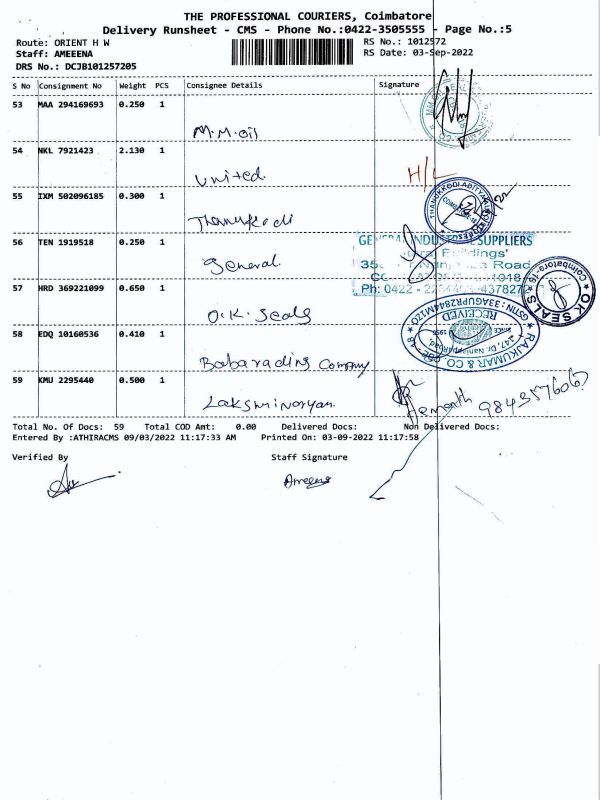 THE PROFESSIONAL COURIERS, Coimbatore
Delivery Runsheet - CMS - Phone No.:0422-3505555 - Page No.:5
Route: ORIENT H W
RS No.: 1012572
Staff: AMEEENA
RS Date: 03-Sep-2022
DRS No.: DCJB101257205
S No Consignment No Weight PCS Consignee Details Signature
53 MAA 294169693 0.250 1
M.M.oil
54 NKL 7921423 2.130 1
United.
H/L
55 IXM 502096185 0.300 1
Thanukodi
56 TEN 1919518 0.250 1
General.
GENERAL INDUSTRIAL SUPPLIERS
Buildings'
Road
Ph: 0422 -
57 HRD 369221099 0.650 1
O.K. Seals
OK SEALS
Coimbatore-18
58 EDQ 10160536 0.410 1
RAJKUMAR & CO
GSTIN: 33AGUPR2844M1ZO
RECEIVED
SINCE 1958
147, Dr. Nanjappa Road,
CBE - 18
Company
59 KMU 2295440 0.500 1
Hemanth
Total No. Of Docs: 59 Total COD Amt: 0.00 Delivered Docs: Non Delivered Docs:
Entered By :ATHIRACMS 09/03/2022 11:17:33 AM Printed On: 03-09-2022 11:17:58
Verified By Staff Signature
Ameena